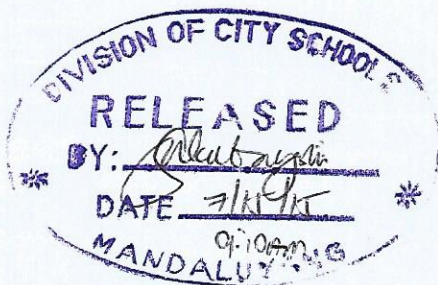 DIVISION OF CITY SCHOOLS
RELEASED
BY:
DATE 7/15/15
9:10AM
MANDALUYONG